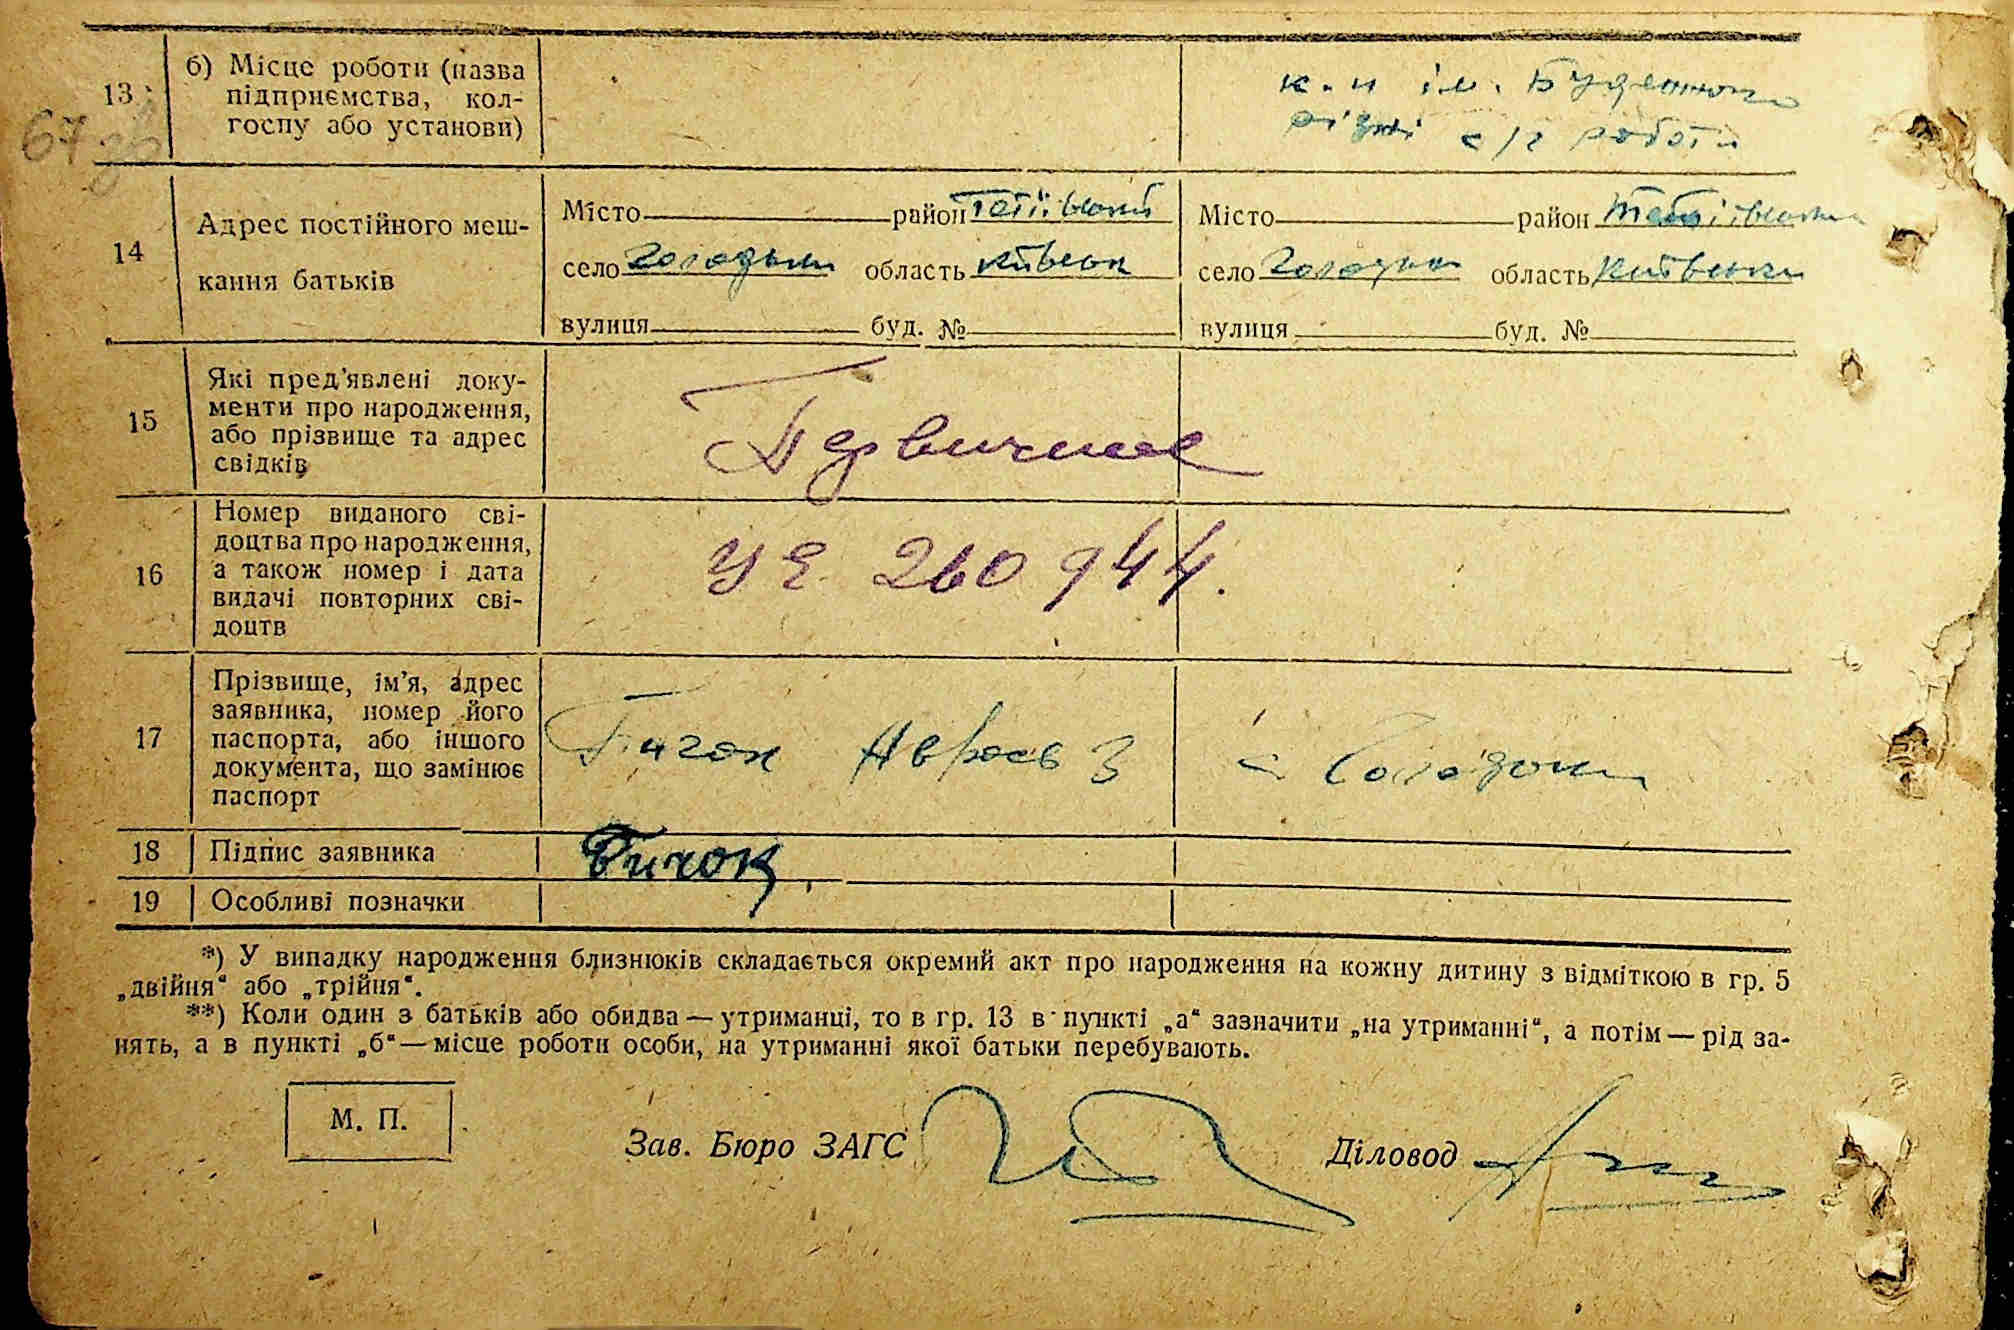 67 зв
13
б) Місце роботи (назва
підприємства, кол-
госпу або установи)
к. п ім. Буденного
різні с/г роботи
14
Адрес постійного меш-
кання батьків
Місто район Тетіївський
село Голодьки область Київськ
вулиця буд. №
Місто район Тетіївський
село Голодьки область Київська
вулиця буд. №
15
Які пред'явлені доку-
менти про народження,
або прізвище та адрес
свідків
Первичное
16
Номер виданого сві-
доцтва про народження,
а також номер і дата
видачі повторних сві-
доцтв
УЕ 260944.
17
Прізвище, ім'я, адрес
заявника, номер його
паспорта, або іншого
документа, що замінює
паспорт
с Голодьки
18
Підпис заявника
Бичок
19
Особливі позначки
*) У випадку народження близнюків складається окремий акт про народження на кожну дитину з відміткою в гр. 5
„двійня“ або „трійня“.
**) Коли один з батьків або обидва — утриманці, то в гр. 13 в пункті „а“ зазначити „на утриманні“, а потім — рід за-
нять, а в пункті „б“ — місце роботи особи, на утриманні якої батьки перебувають.
М. П.
Зав. Бюро ЗАГС
Діловод